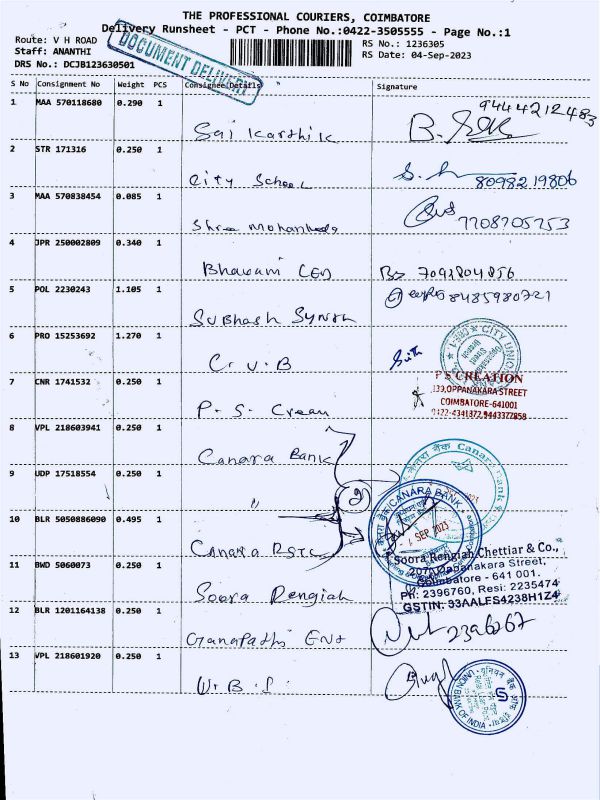 THE PROFESSIONAL COURIERS, COIMBATORE
Delivery Runsheet - PCT - Phone No.:0422-3505555 - Page No.:1
Route: V H ROAD
Staff: ANANTHI
DRS No.: DCJB123630501
DOCUMENT DELIVERY
RS No.: 1236305
RS Date: 04-Sep-2023
S No Consignment No Weight PCS Consignee Details Signature
1 MAA 570118680 0.290 1 Sai Karthik 9444212483
2 STR 171316 0.250 1 City School 8098219806
3 MAA 570838454 0.085 1 Shree 7708705753
4 JPR 250002809 0.340 1 Bhavani 7091804856
5 POL 2230243 1.105 1 Subhash Synth 8485980721
6 PRO 15253692 1.270 1 C.U.B
CITY UNION
7 CNR 1741532 0.250 1 P. S. Cream
P S CREATION
139,OPPANAKARA STREET
COIMBATORE-641001
0422-4341372,9443372858
8 VPL 218603941 0.250 1 Canara Bank
केनरा बैंक Canara Bank
9 UDP 17518554 0.250 1 "
CANARA BANK
1 SEP 2023
10 BLR 5050886090 0.495 1 Canara
11 BWD 5060073 0.250 1 Soora Rengiah
Soora Rengiah Chettiar & Co.,
207, Oppanakara Street,
Coimbatore - 641 001.
Ph: 2396760, Resi: 2235474
GSTIN: 33AALFS4238H1Z4
12 BLR 1201164138 0.250 1 Ganapathi Ent 2396267
13 VPL 218601920 0.250 1 U.B.I.
यूनियन बैंक
UNION BANK OF INDIA